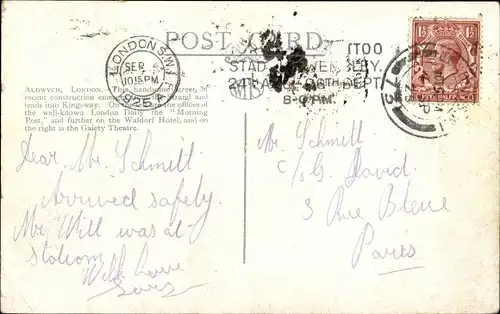 POST CARD
LONDON.S.W.1
SEP
10.15 PM
1925
TTOO
STAD WEMBLEY.
24TH SEPT.
8-0 PM.
1½ 1½
ALDWYCH, LONDON. This handsome street, of
recent construction
leads into Kingsway. On the offices of
the well-known London Daily the "Morning
Post," and further on the Waldorf Hotel, and on
the right is the Gaiety Theatre.
Dear Mr. Schmell
Arrived safely.
Mr Will was at
station
With love
Mr. Schmell
c/o G. David.
3 Rue Bleue
Paris